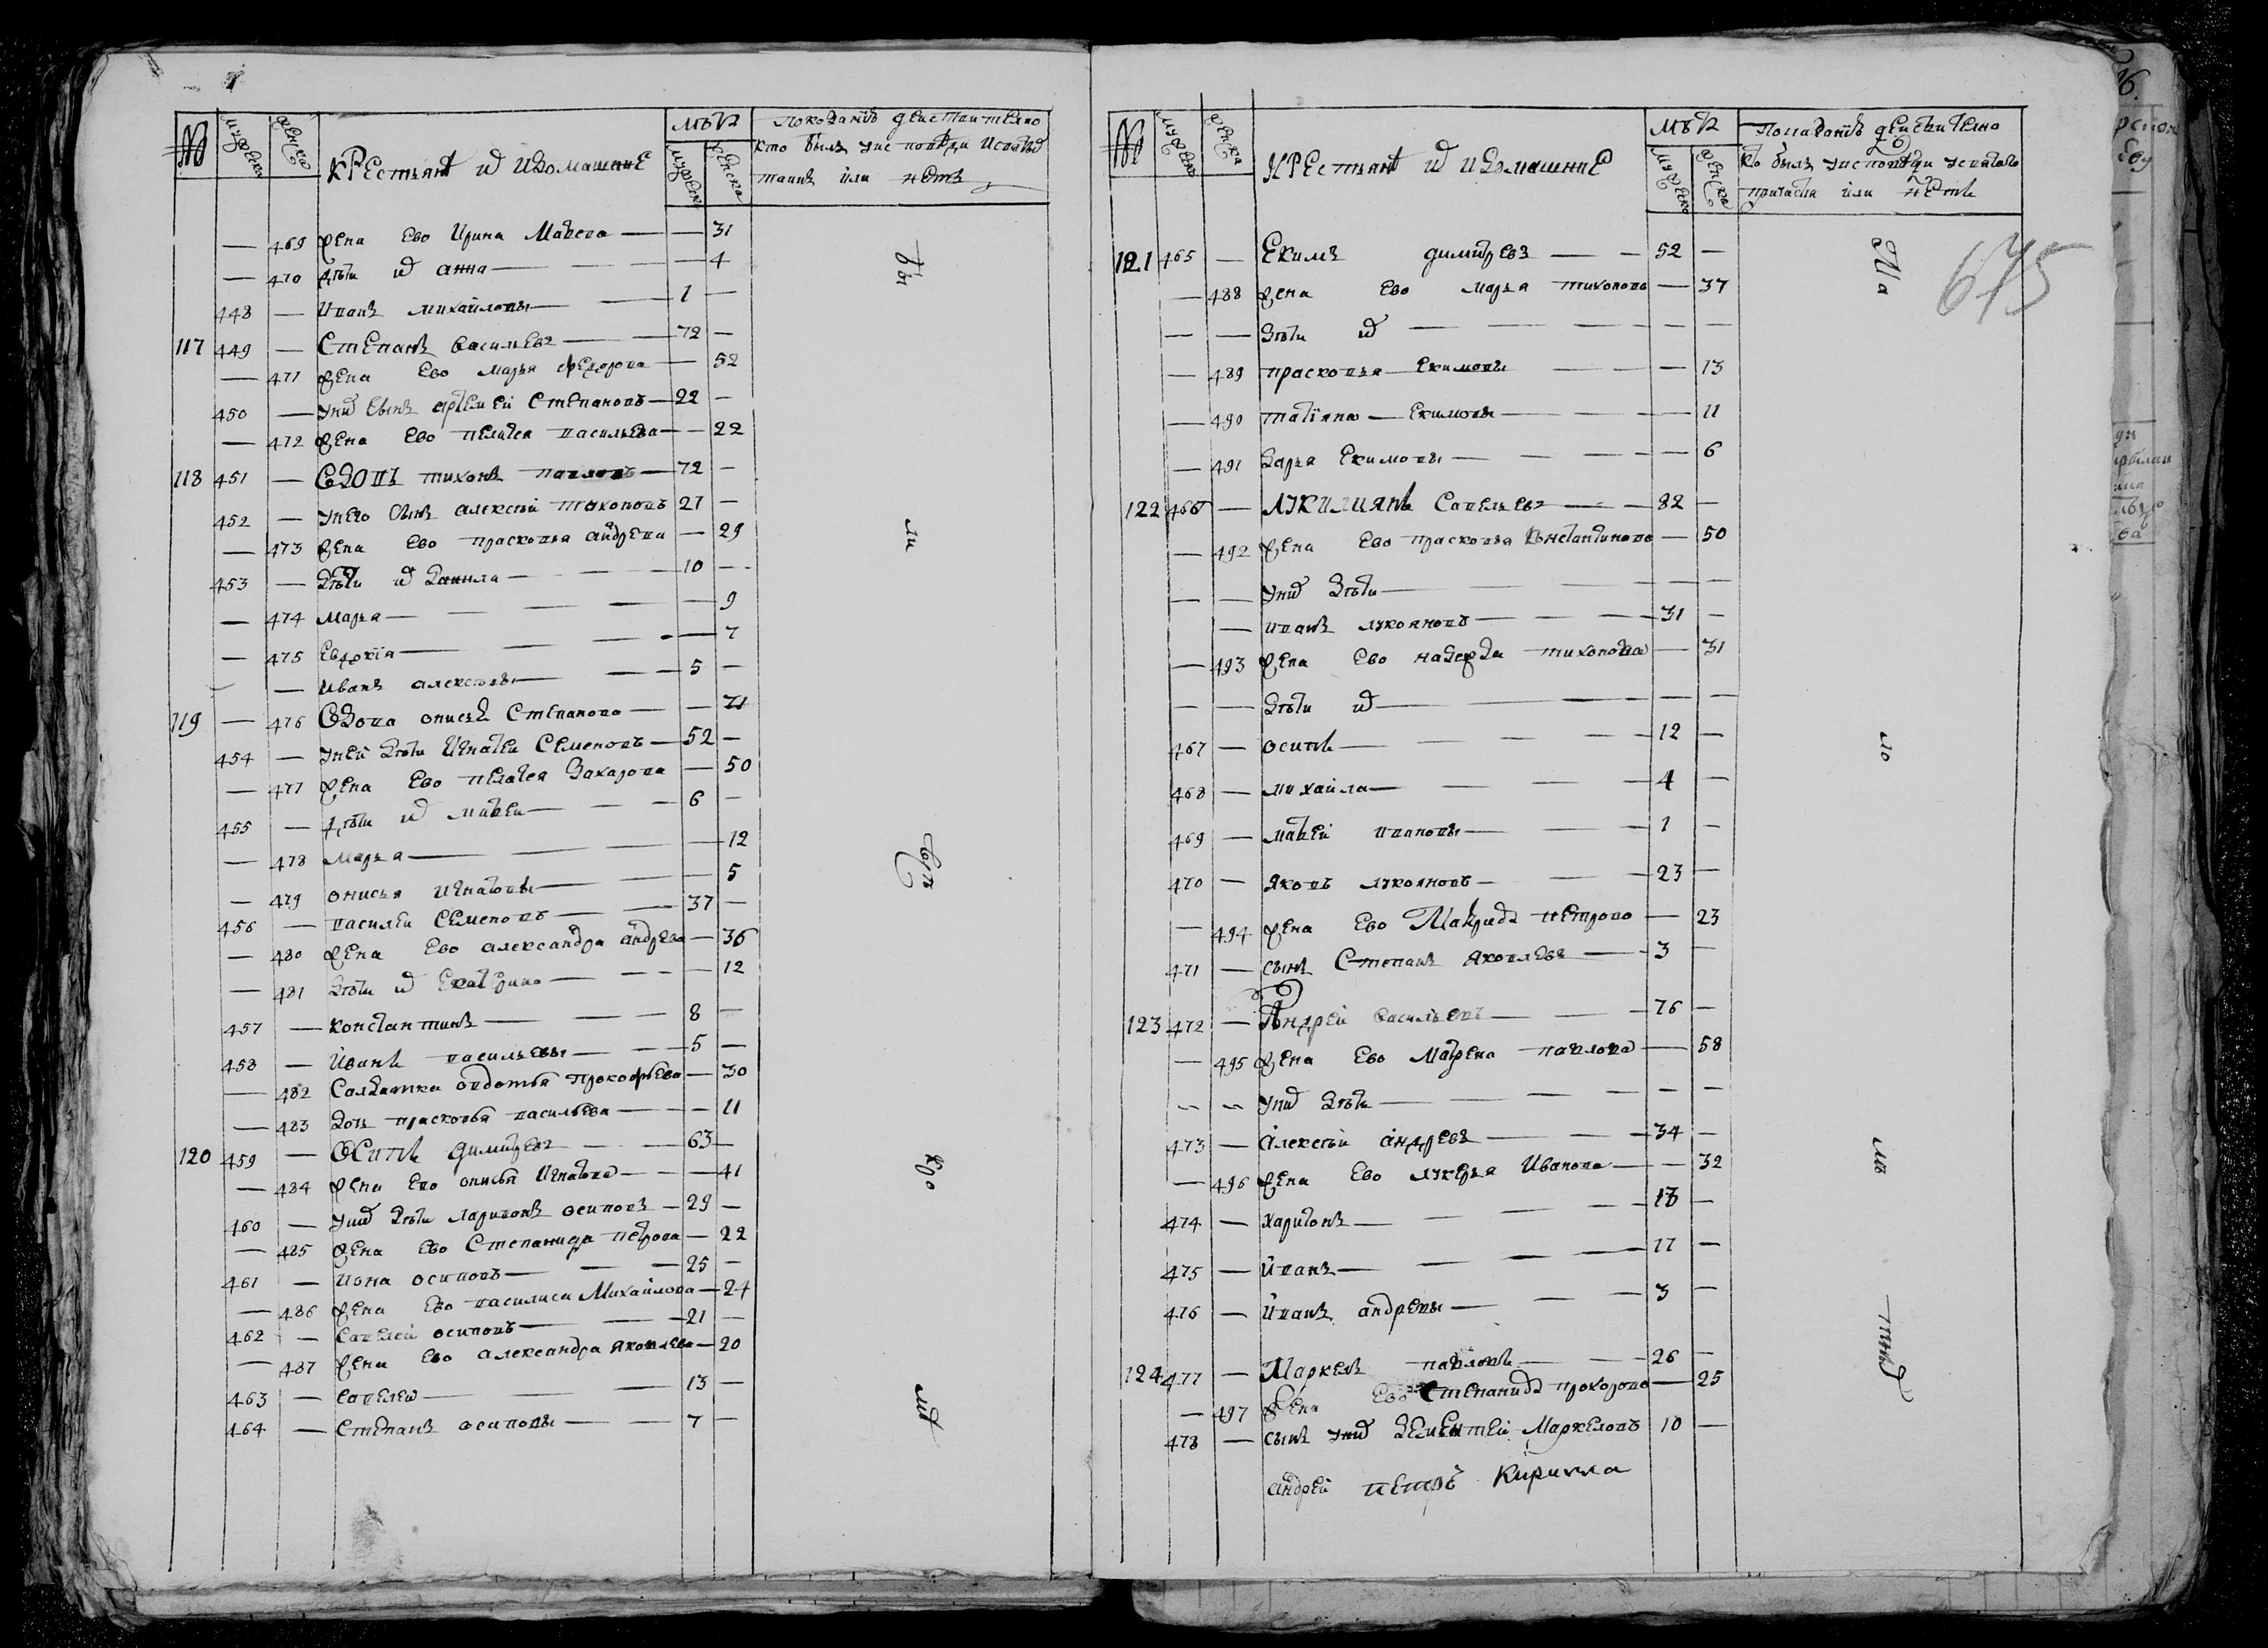 № мужеска женска крестьянѣ и ихъ домашние мужеска женска показанїе действително
кто былъ у исповѣди и святаго
таинъ или нетъ
— 469 жена ево Ирина Матвева — — 31
— 470 дѣти их анна — — 4
448 — Иванъ михайловы — 1 —
117 449 — Степанъ васильевъ — 72 —
— 471 жена ево марья федорова — — 52
450 — у них сынъ артемей степановъ — 22 —
— 472 жена ево пелагея васильева — — 22
118 451 — вдовъ тихонъ павловъ — 72 —
452 — у него сынъ алексѣй тихоновъ 21 —
— 473 жена ево прасковья андрева — 29
453 — дѣти их данила — 10 —
— 474 марья — — 9
— 475 евдокїя — — 7
— — иванъ алексѣевы — 5 —
119 — 476 вдова онисья степанова — — 71
454 — у ней дѣти игнатей семеновъ — 52 —
— 477 жена ево пелагея захарова — 50
455 — дѣти их матвей — 6 —
— 478 марья — — 12
— 479 онисья игнатовы — — 5
456 — василей семеновъ — 37 —
— 480 жена ево александра андрева — 36
— 481 дѣти их екатерина — — 12
457 — константинъ — 8 —
458 — иванъ васильевы — 5 —
— 482 салдатка овдотья прокофьева — 30
— 483 дочь прасковья васильева — — 11
120 459 — Осипъ димитревъ — 63 —
— 484 жена ево онисья игнатова — — 41
460 — у них дѣти ларивонъ осиповъ — 29 —
— 485 жена ево степанида петрова — 22
461 — иона осиповъ — 25 —
— 486 жена ево василиса михайлова — 24
462 — савелей осиповъ — 21 —
— 487 жена ево александра яковлева — 20
463 — савелей — 13 —
464 — степанъ осиповы — 7 —
№ мужеска женска крестьянѣ и ихъ домашние мужеска женска показанїе действително
кто былъ у исповѣди и святаго
причастия или нетъ
675
121 465 — Екимъ димитревъ — 52 —
— 488 жена ево марья тихонова — 37
— — дѣти их — — —
— 489 прасковья екимовы — — 13
— 490 татїяна — екимовы — — 11
— 491 дарья екимовы — — 6
122 466 — лукиянъ савельевъ — 82 —
— 492 жена ево прасковья константинова — 50
— — у них дѣти — — —
— иванъ лукояновъ — 31 —
— 493 жена ево надежда тихонова — 31
— — дѣти их — — —
467 — осипъ — 12 —
468 — михайла — 4 —
469 — матвей ивановы — 1 —
470 — яковъ лукояновъ — 23 —
— 494 жена ево Макрида петрова — 23
471 — сынъ степанъ яковлевъ — 3 —
123 472 — Андрей васильевъ — 76 —
— 495 жена ево матрена павлова — 58
— — у них дѣти — — —
473 — алексѣй андревъ — 34 —
— 496 жена ево лукерья иванова — — 32
474 — харитонъ — 13 —
475 — иванъ — 11 —
476 — иванъ андревы — 3 —
124 477 — Маркелъ павловъ — 26 —
— 497 жена ево степанида прохорова — 25
478 — сынъ у них дементей маркеловъ 10 —
андрей петръ кирилла